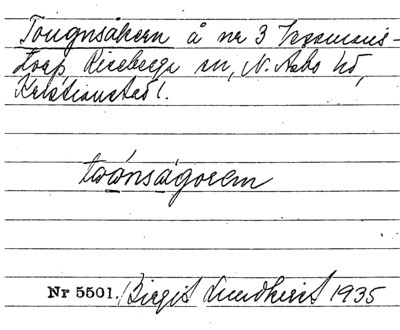 Tougnsåkern å nr 3 Kromans-
torp Riseberga sn, N. Åsbo hd,
Kristianstad l.
tɷónságorem
Nr 5501. Birgit Lundkvist 1935